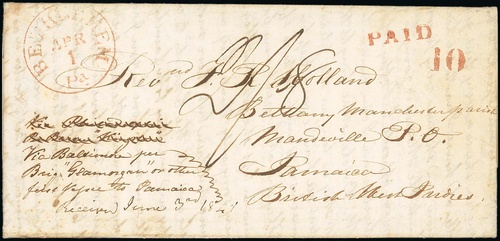 BETHLEHEM
APR
1
Pa
PAID
10
Revnd J. H. Holland
2/8
Bethany Manchester parish
Mandeville P.O.
Jamaica
British West Indies
Via Baltimore per
Brig "Glamorgan or other
first to Jamaica
Received June 3rd 18